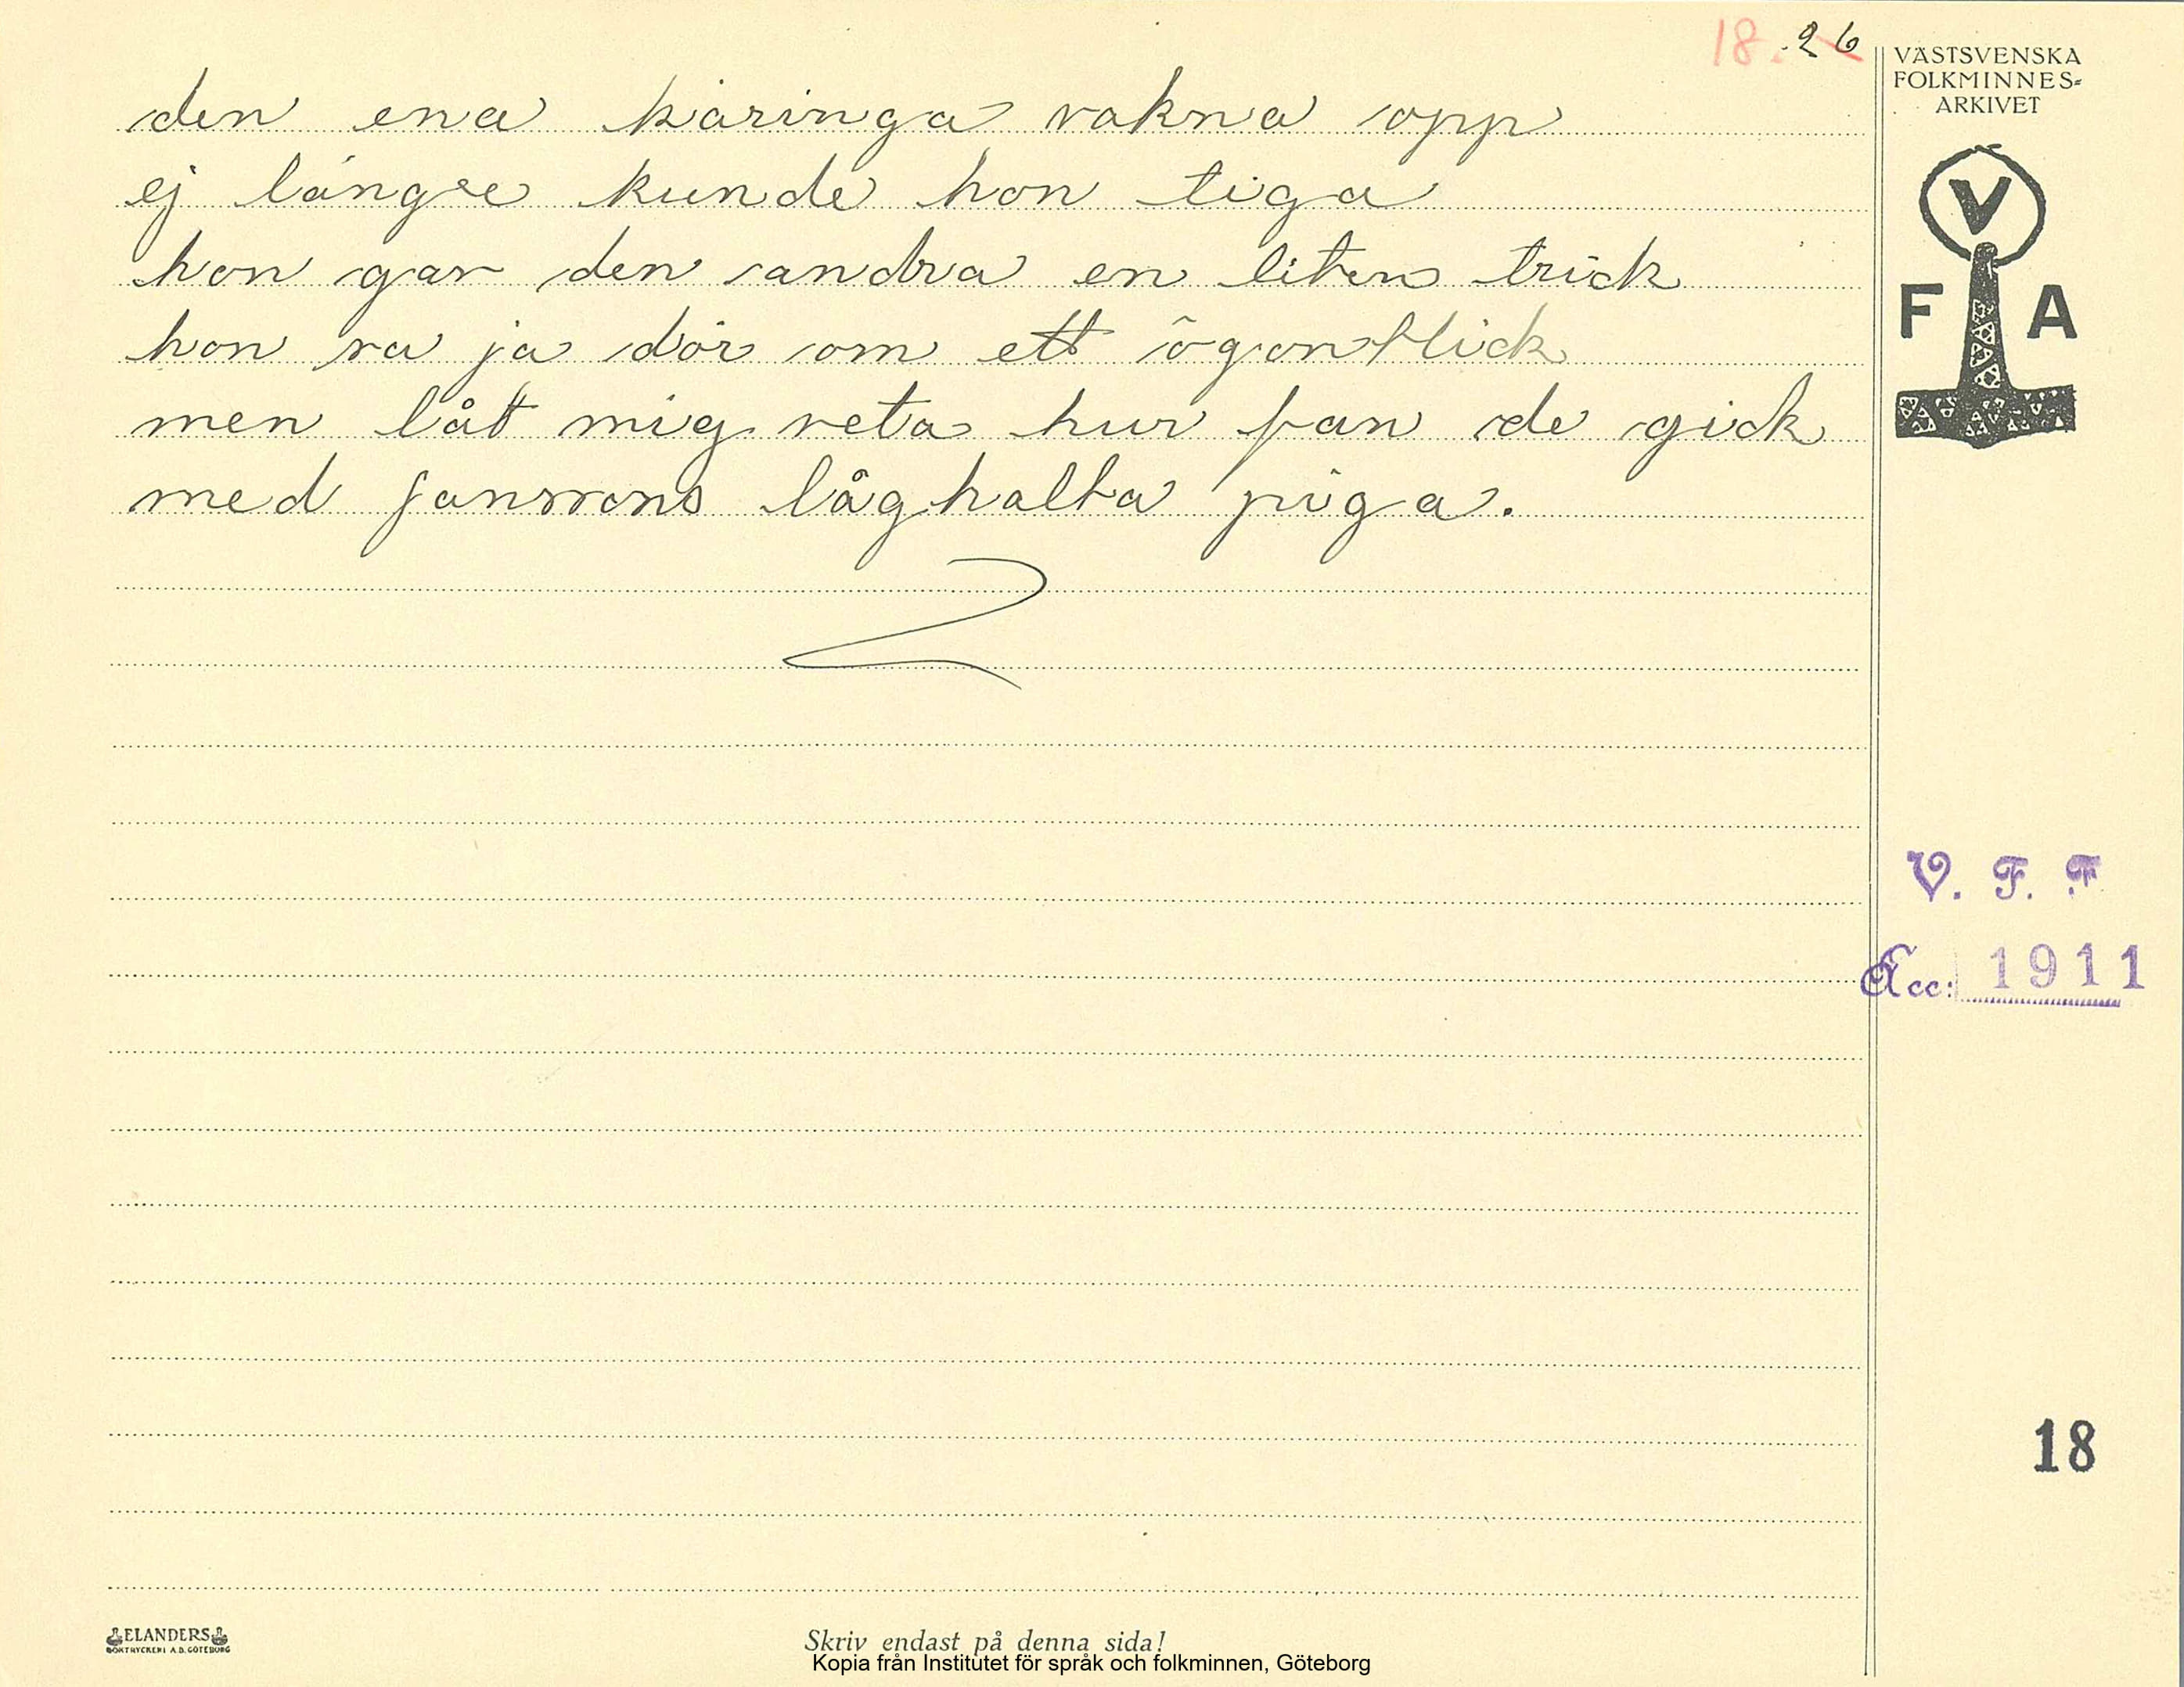 18. 26
VÄSTSVENSKA
FOLKMINNES=
ARKIVET
den ena käringa vakna opp
ej längre kunde hon tiga
hon gav den andra en liten trick
hon va ja dör om ett ögonblick
men låt mig veta hur fan de gick
med Janssons låghalta piga.
V
F A
V. F. F.
Acc: 1911
18
ELANDERS
BOKTRYCKERI A.B. GÖTEBORG
Skriv endast på denna sida!
Kopia från Institutet för språk och folkminnen, Göteborg